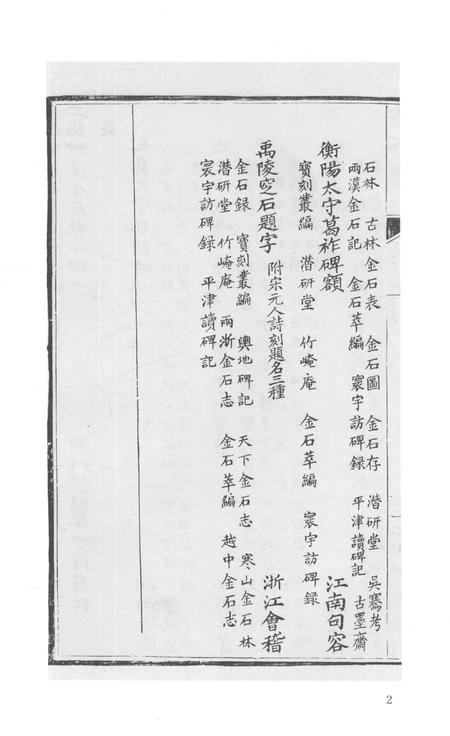 石林　古林金石表　金石圖　金石存　潛研堂　吳騫考
兩漢金石記　金石萃編　寰宇訪碑錄　平津讀碑記　古墨齋
衡陽太守葛祚碑額　江南句容
寶刻叢編　潛研堂　竹崦庵　金石萃編　寰宇訪碑錄
禹陵窆石題字　附宋元人詩刻題名三種　浙江會稽
金石録　寶刻叢編　輿地碑記　天下金石志　寒山金石林
潛研堂　竹崦庵　兩浙金石志　金石萃編　越中金石志
寰宇訪碑録　平津讀碑記
2